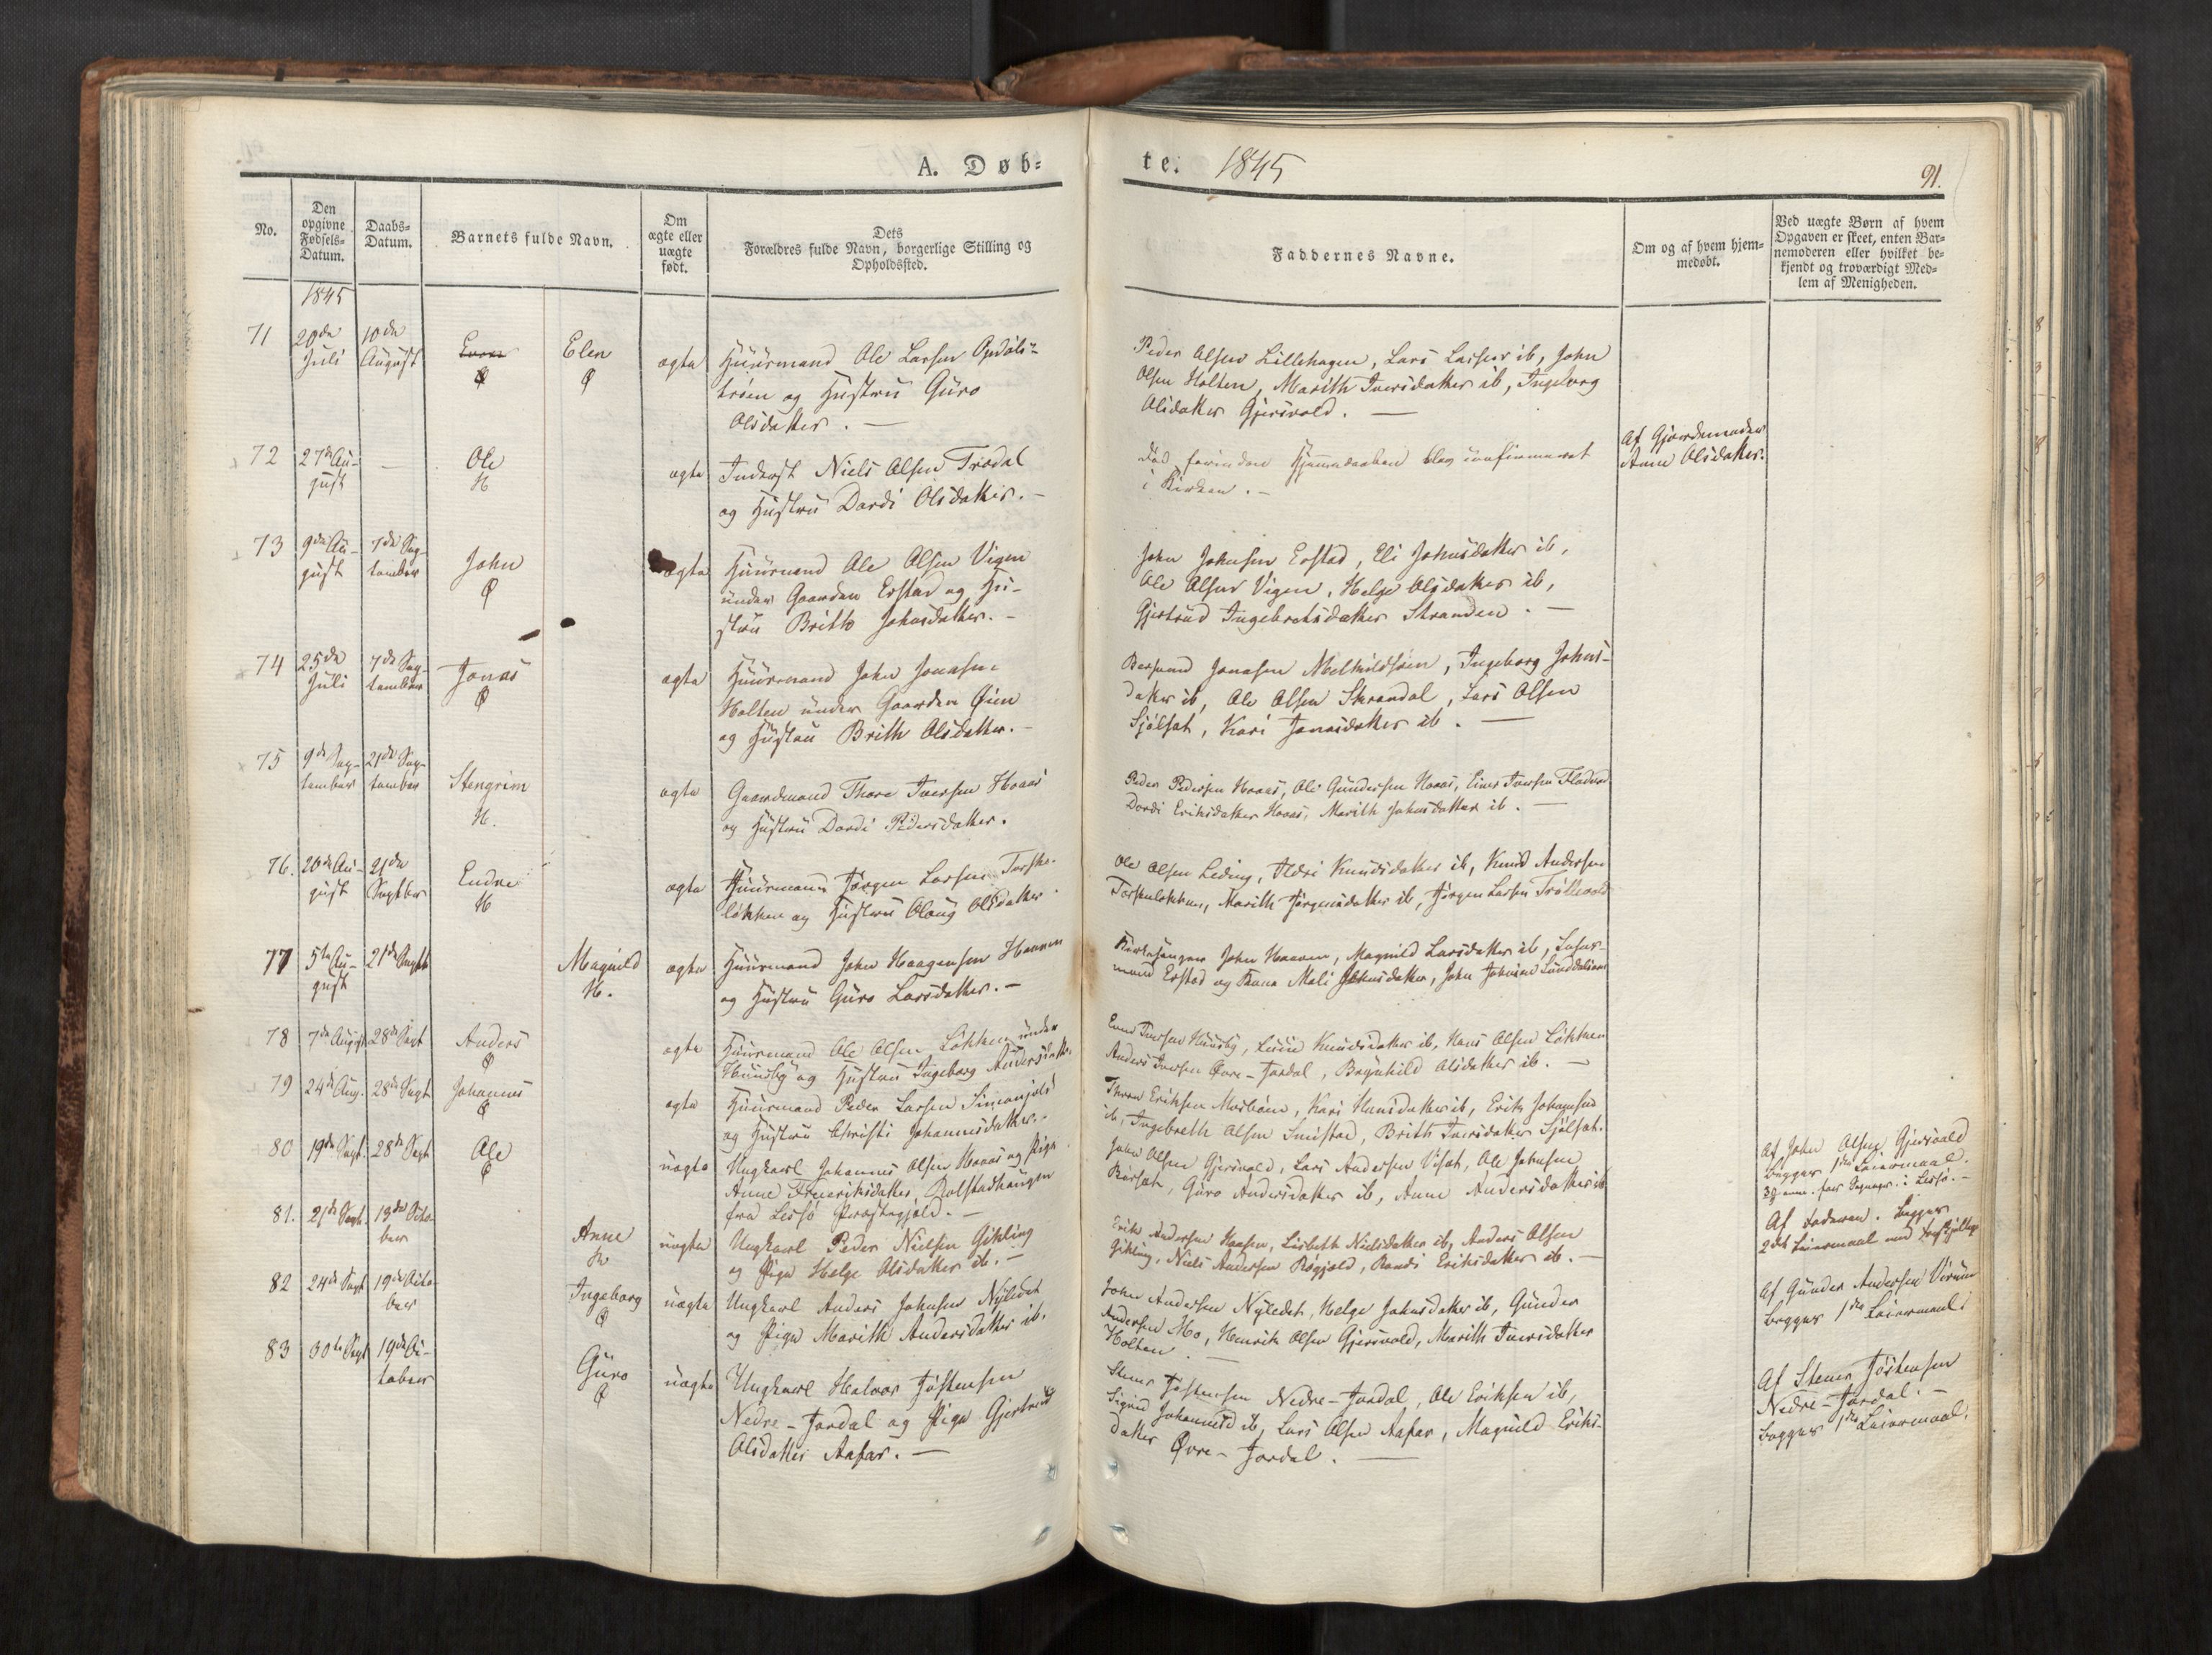 A. Døb-
te. 1845
91.
No.
Den
opgivne
Fødsels-
Datum.
Daabs-
Datum.
Barnets fulde Navn.
Om
ægte eller
uægte
født.
Dets
Forældres fulde Navn, borgerlige Stilling og
Opholdssted.
Faddernes Navne.
Om og af hvem hjem-
medøbt.
Ved uægte Børn af hvem
Opgaven er skeet, enten Bar-
nemoderen eller hvilket be-
kjendt og troværdigt Med-
lem af Menigheden.
1845
71
20de
Juli
10de
August
Elen
Ø
ægte
Huusmand Ole Larsen Opdöls-
trøen og Hustru Guro
Olsdatter. —
Peder Olsen Lillehagen, Lars Larsen ib, John
Olsen Holten, Marith Iversdatter ib, Ingeborg
Olsdatter Gjersvold. —
72
27de Au-
gust
—
Ole
H
ægte
Inderst Niels Olsen Trodal
og Hustru Dordi Olsdatter. —
Død forinden Hjemmedaaben blev confirmeret
i Kirken. —
Af Gjordemoder
Anne Olsdatter.
73
9de Au-
gust
7de Sep-
tember
John
Ø
ægte
Huusmand Ole Olsen Vigen
under Gaarden Erstad og Hu-
stru Brith Johnsdatter. —
John Johnsen Erstad, Eli Johnsdatter ib,
Ole Olsen Vigen, Helge Olsdatter ib,
Gjertrud Ingebretsdatter Stranden. —
74
25de
Juli
7de Sep-
tember
Jonas
Ø
ægte
Huusmand John Jonasen
Holten under Gaarden Øien
og Hustru Brith Olsdatter. —
Jonasen Melkildsøien, Ingeborg Johns-
datter ib, Ole Olsen Skrondal, Lars Olsen
Sjølsat, Kari Jonasdatter ib. —
75
9de Sep-
tember
21de Sep-
tember
Stengrim
H.
ægte
Gaardmand Thore Iversen Hoaas
og Hustru Dordi Pedersdatter.
Peder Pedersen Hoaas, Ole Gundersen Hoaas, Einer Iversen
Dordi Eriksdatter Hoaas, Marith Johnsdatter ib. —
76.
20de Au-
gust
21de
Septbr
Endre
H
ægte
Huusmand Jørgen Larsen Torske-
løkken og Hustru Olaug Olsdatter.
Ole Olsen Leding, Ildri Knudsdatter ib, Knud Andersen
Torskeløkken, Marith Jørgensdatter ib, Jørgen Larsen
77
5te Au-
gust
21de Septb
Magnild
H.
ægte
Huusmand John Haagensen Haaven
og Hustru Guro Larsdatter. —
Kirkesanger John Haaven, Magnild Larsdatter ib, Lehns-
mand Erstad og Kone Mali Johnsdatter, John Johnsen
78
7de August
28de Sept
Anders
Ø
ægte
Huusmand Ole Olsen Løkken under
Huusby og Hustru Ingeborg Andersdatter.
Iversen Huusby, Knudsdatter ib, Hans Olsen Løkken
Anders Iversen Øvre-Jordal, Brynhild Olsdatter ib. —
79
24de Aug.
28de Sept
Johannes
Ø
ægte
Huusmand Peder Larsen
og Hustru Christi Johannesdatter. —
Thron Eriksen Mosbøen, Kari Hansdatter ib, Erik Johansen
ib, Ingebreth Olsen Smistad, Brith Iversdatter Sjølsat.
80
19de Sept.
28de Sept
Ole
Ø
uægte
Ungkarl Johannes Olsen Hoaas og Pige
Anne Frederiksdatter, Bolstadhaugen
fra Lessø Præstegjeld. —
John Olsen Gjersvold, Lars Andersen Visat, Ole Johnsen
Guro Andersdatter ib, Anne Andersdatter ib
Af John Olsen Gjersvold
Begges 1ste Leiermaal.
81.
21de Sept.
19de Octo-
ber
Anne
H
uægte
Ungkarl Peder Nielsen Gikling
og Pige Helge Olsdatter ib. —
Erik Andersen Hoasen, Lisbeth Nielsdatter ib, Anders Olsen
Gikling, Niels Andersen Røgjeld, Randi Eriksdatter ib. —
Af Faderen. Begges
2det Leiermaal med
82
24de Sept
19de Octo-
ber
Ingeborg
Ø
uægte
Ungkarl Anders Johnsen Nyledet
og Pige Marith Andersdatter ib.
John Andersen Nyledet, Helge Johnsdatter ib, Gunder
Andersen Mo, Henrik Olsen Gjersvold, Marith Iversdatter
Holten —
Af Gunder Andersen
Begges 1ste Leiermaal
83
30te Sept
19de Oc-
tober
Guro
Ø
uægte
Ungkarl Halvor Jøstensen
Nedre-Jordal og Pige Gjertrud
Olsdatter Aafar. —
Stener Jøstensen Nedre-Jordal, Ole Eriksen ib,
Sigrid Johannesd ib, Lars Olsen Aafar, Magnild Eriks-
datter Øvre-Jordal. —
Af Stener Jøstensen
Nedre-Jordal. —
Begges 1ste Leiermaal.